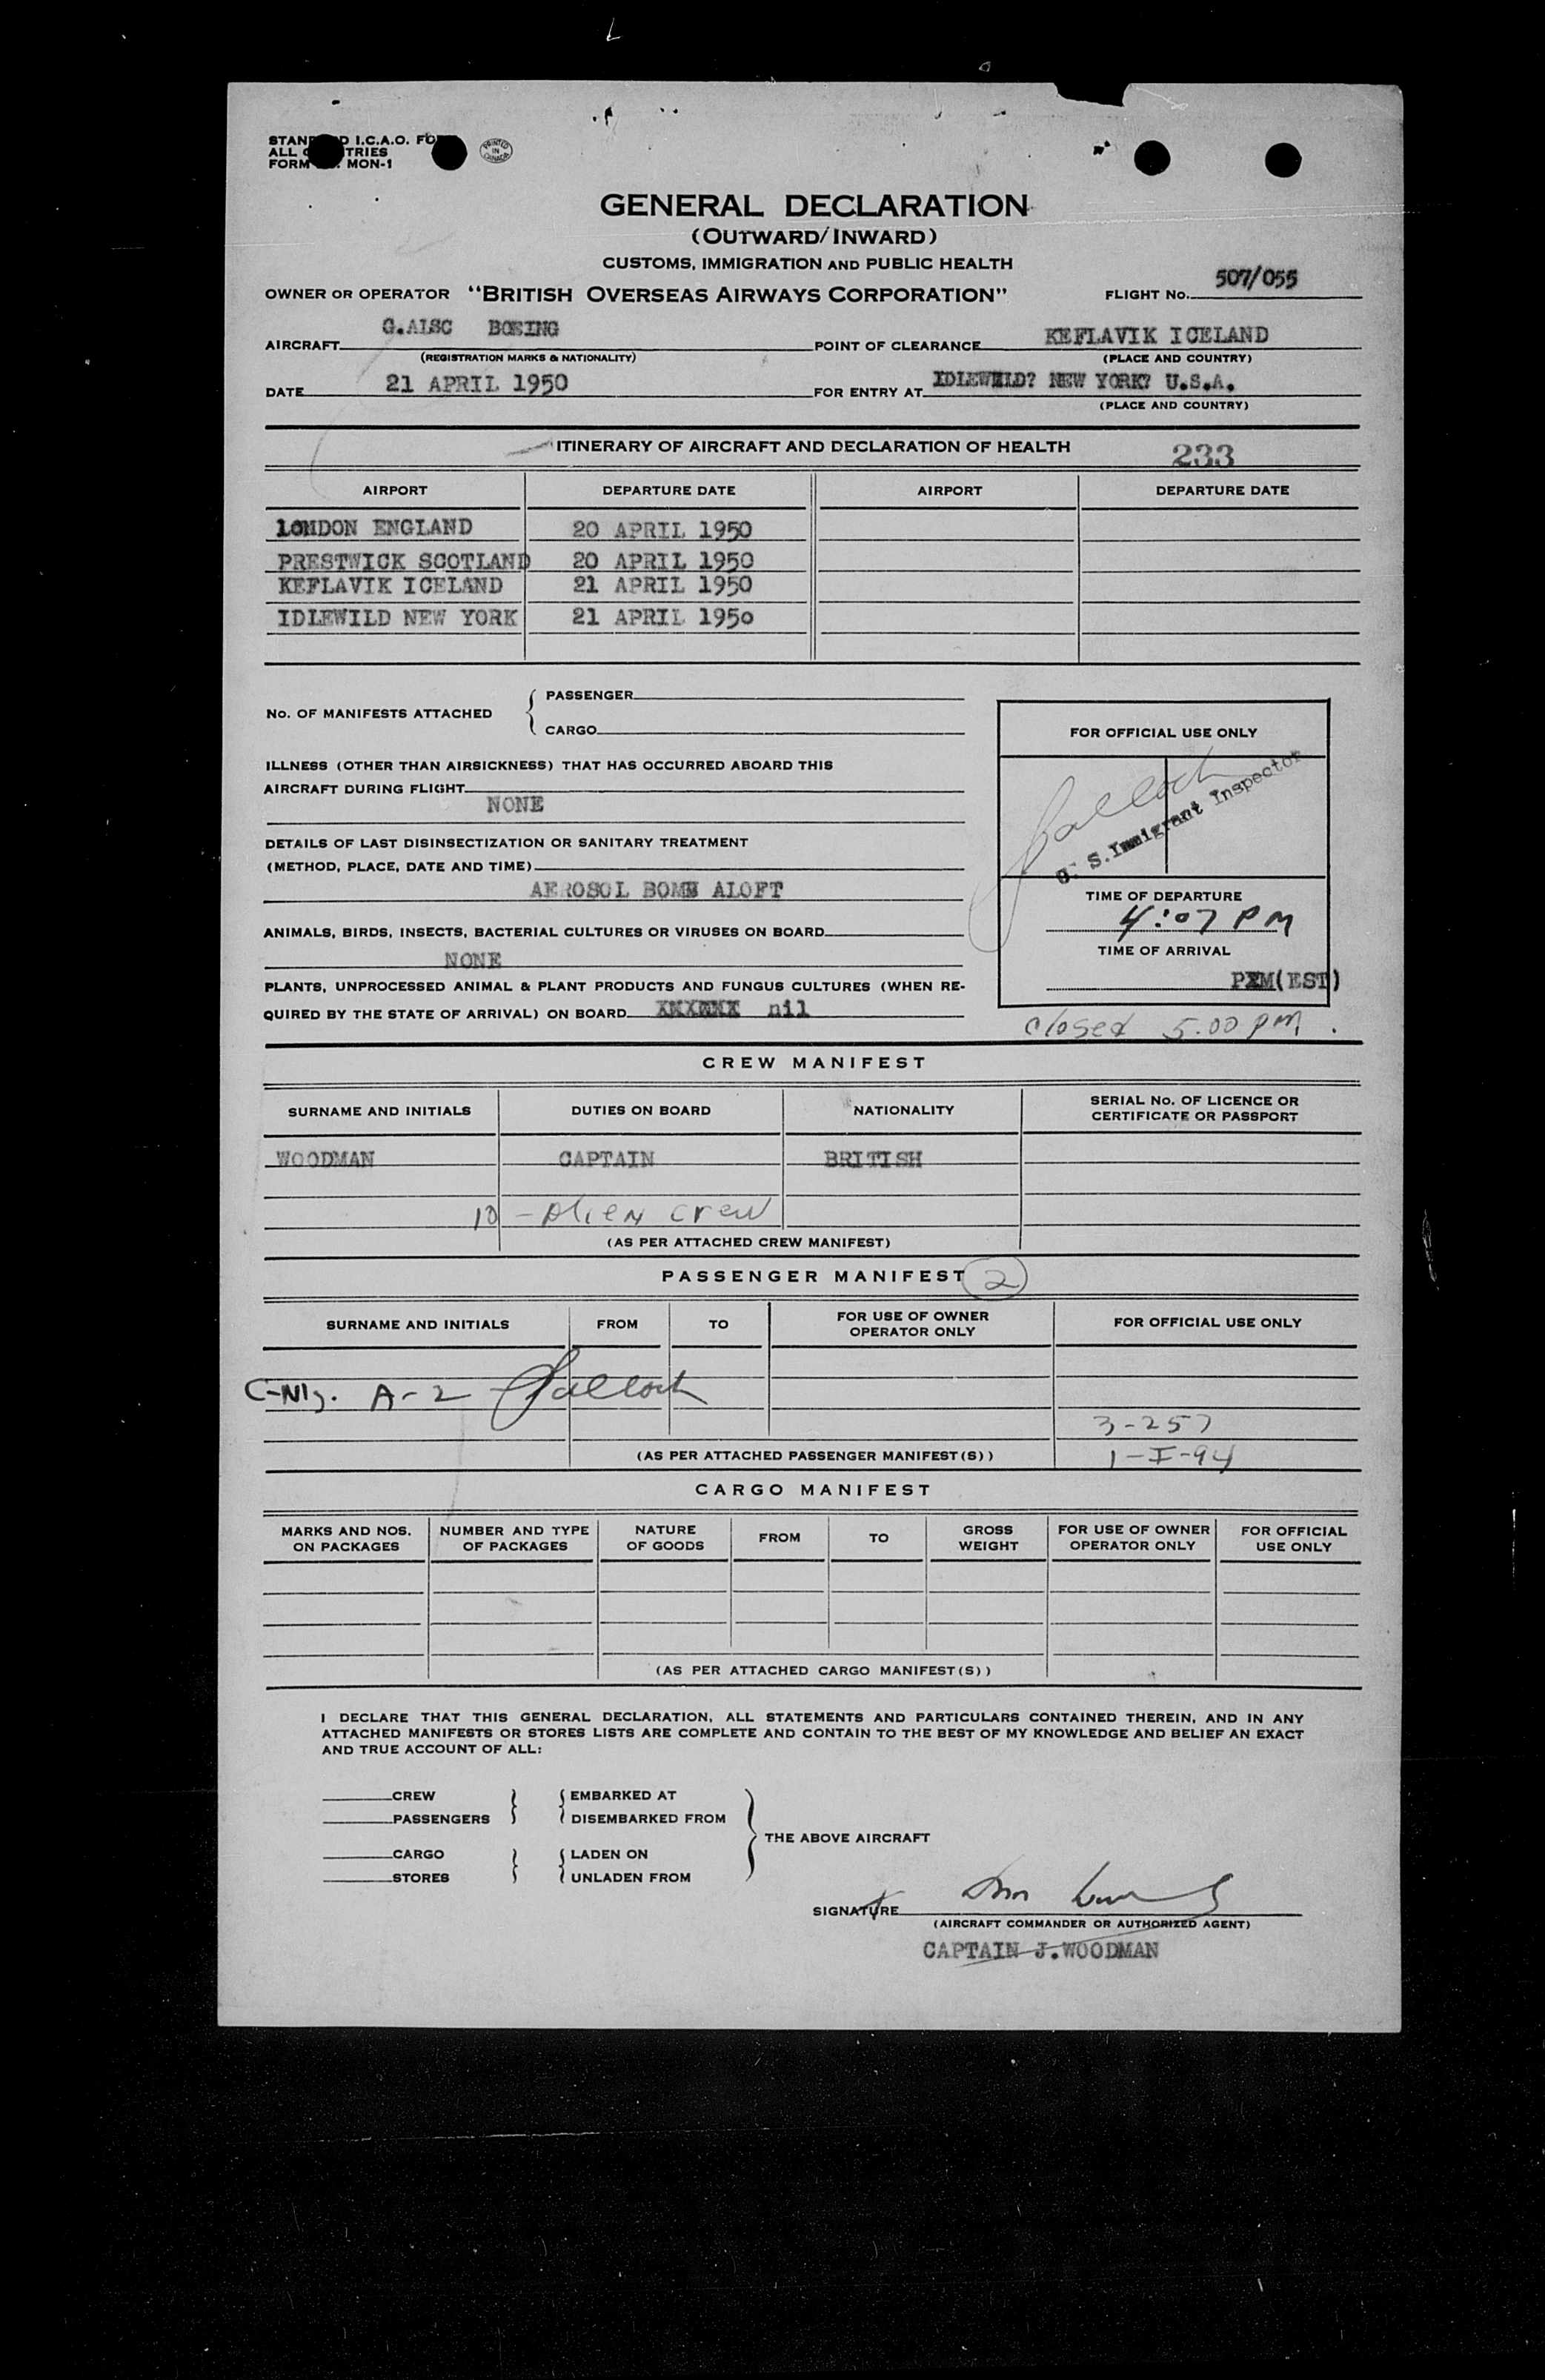 I.C.A.O.
ALL
FORM MON-1
PRINTED IN CANADA
GENERAL DECLARATION
(OUTWARD/INWARD)
CUSTOMS, IMMIGRATION AND PUBLIC HEALTH
OWNER OR OPERATOR "BRITISH OVERSEAS AIRWAYS CORPORATION" FLIGHT No. 507/055
AIRCRAFT G.ALSC BOEING POINT OF CLEARANCE KEFLAVIK ICELAND
(REGISTRATION MARKS & NATIONALITY) (PLACE AND COUNTRY)
DATE 21 APRIL 1950 FOR ENTRY AT IDLEWILD? NEW YORK? U.S.A.
(PLACE AND COUNTRY)
ITINERARY OF AIRCRAFT AND DECLARATION OF HEALTH 233
AIRPORT DEPARTURE DATE AIRPORT DEPARTURE DATE
LONDON ENGLAND 20 APRIL 1950
PRESTWICK SCOTLAND 20 APRIL 1950
KEFLAVIK ICELAND 21 APRIL 1950
IDLEWILD NEW YORK 21 APRIL 195o
No. OF MANIFESTS ATTACHED
PASSENGER
CARGO
ILLNESS (OTHER THAN AIRSICKNESS) THAT HAS OCCURRED ABOARD THIS
AIRCRAFT DURING FLIGHT
NONE
DETAILS OF LAST DISINSECTIZATION OR SANITARY TREATMENT
(METHOD, PLACE, DATE AND TIME)
AEROSOL BOMB ALOFT
ANIMALS, BIRDS, INSECTS, BACTERIAL CULTURES OR VIRUSES ON BOARD
NONE
PLANTS, UNPROCESSED ANIMAL & PLANT PRODUCTS AND FUNGUS CULTURES (WHEN RE-
QUIRED BY THE STATE OF ARRIVAL) ON BOARD nil
FOR OFFICIAL USE ONLY
U. S. Immigrant Inspector
TIME OF DEPARTURE
4:07 PM
TIME OF ARRIVAL
PXM(EST)
closed 5.00 pm.
CREW MANIFEST
SURNAME AND INITIALS DUTIES ON BOARD NATIONALITY SERIAL No. OF LICENCE OR CERTIFICATE OR PASSPORT
WOODMAN CAPTAIN BRITISH
10 - Alien crew
(AS PER ATTACHED CREW MANIFEST)
PASSENGER MANIFEST 2
SURNAME AND INITIALS FROM TO FOR USE OF OWNER OPERATOR ONLY FOR OFFICIAL USE ONLY
A-2
3-257
1-I-94
(AS PER ATTACHED PASSENGER MANIFEST(S))
CARGO MANIFEST
MARKS AND NOS. ON PACKAGES NUMBER AND TYPE OF PACKAGES NATURE OF GOODS FROM TO GROSS WEIGHT FOR USE OF OWNER OPERATOR ONLY FOR OFFICIAL USE ONLY
(AS PER ATTACHED CARGO MANIFEST(S))
I DECLARE THAT THIS GENERAL DECLARATION, ALL STATEMENTS AND PARTICULARS CONTAINED THEREIN, AND IN ANY
ATTACHED MANIFESTS OR STORES LISTS ARE COMPLETE AND CONTAIN TO THE BEST OF MY KNOWLEDGE AND BELIEF AN EXACT
AND TRUE ACCOUNT OF ALL:
CREW EMBARKED AT
PASSENGERS DISEMBARKED FROM
THE ABOVE AIRCRAFT
CARGO LADEN ON
STORES UNLADEN FROM
SIGNATURE
(AIRCRAFT COMMANDER OR AUTHORIZED AGENT)
CAPTAIN J.WOODMAN